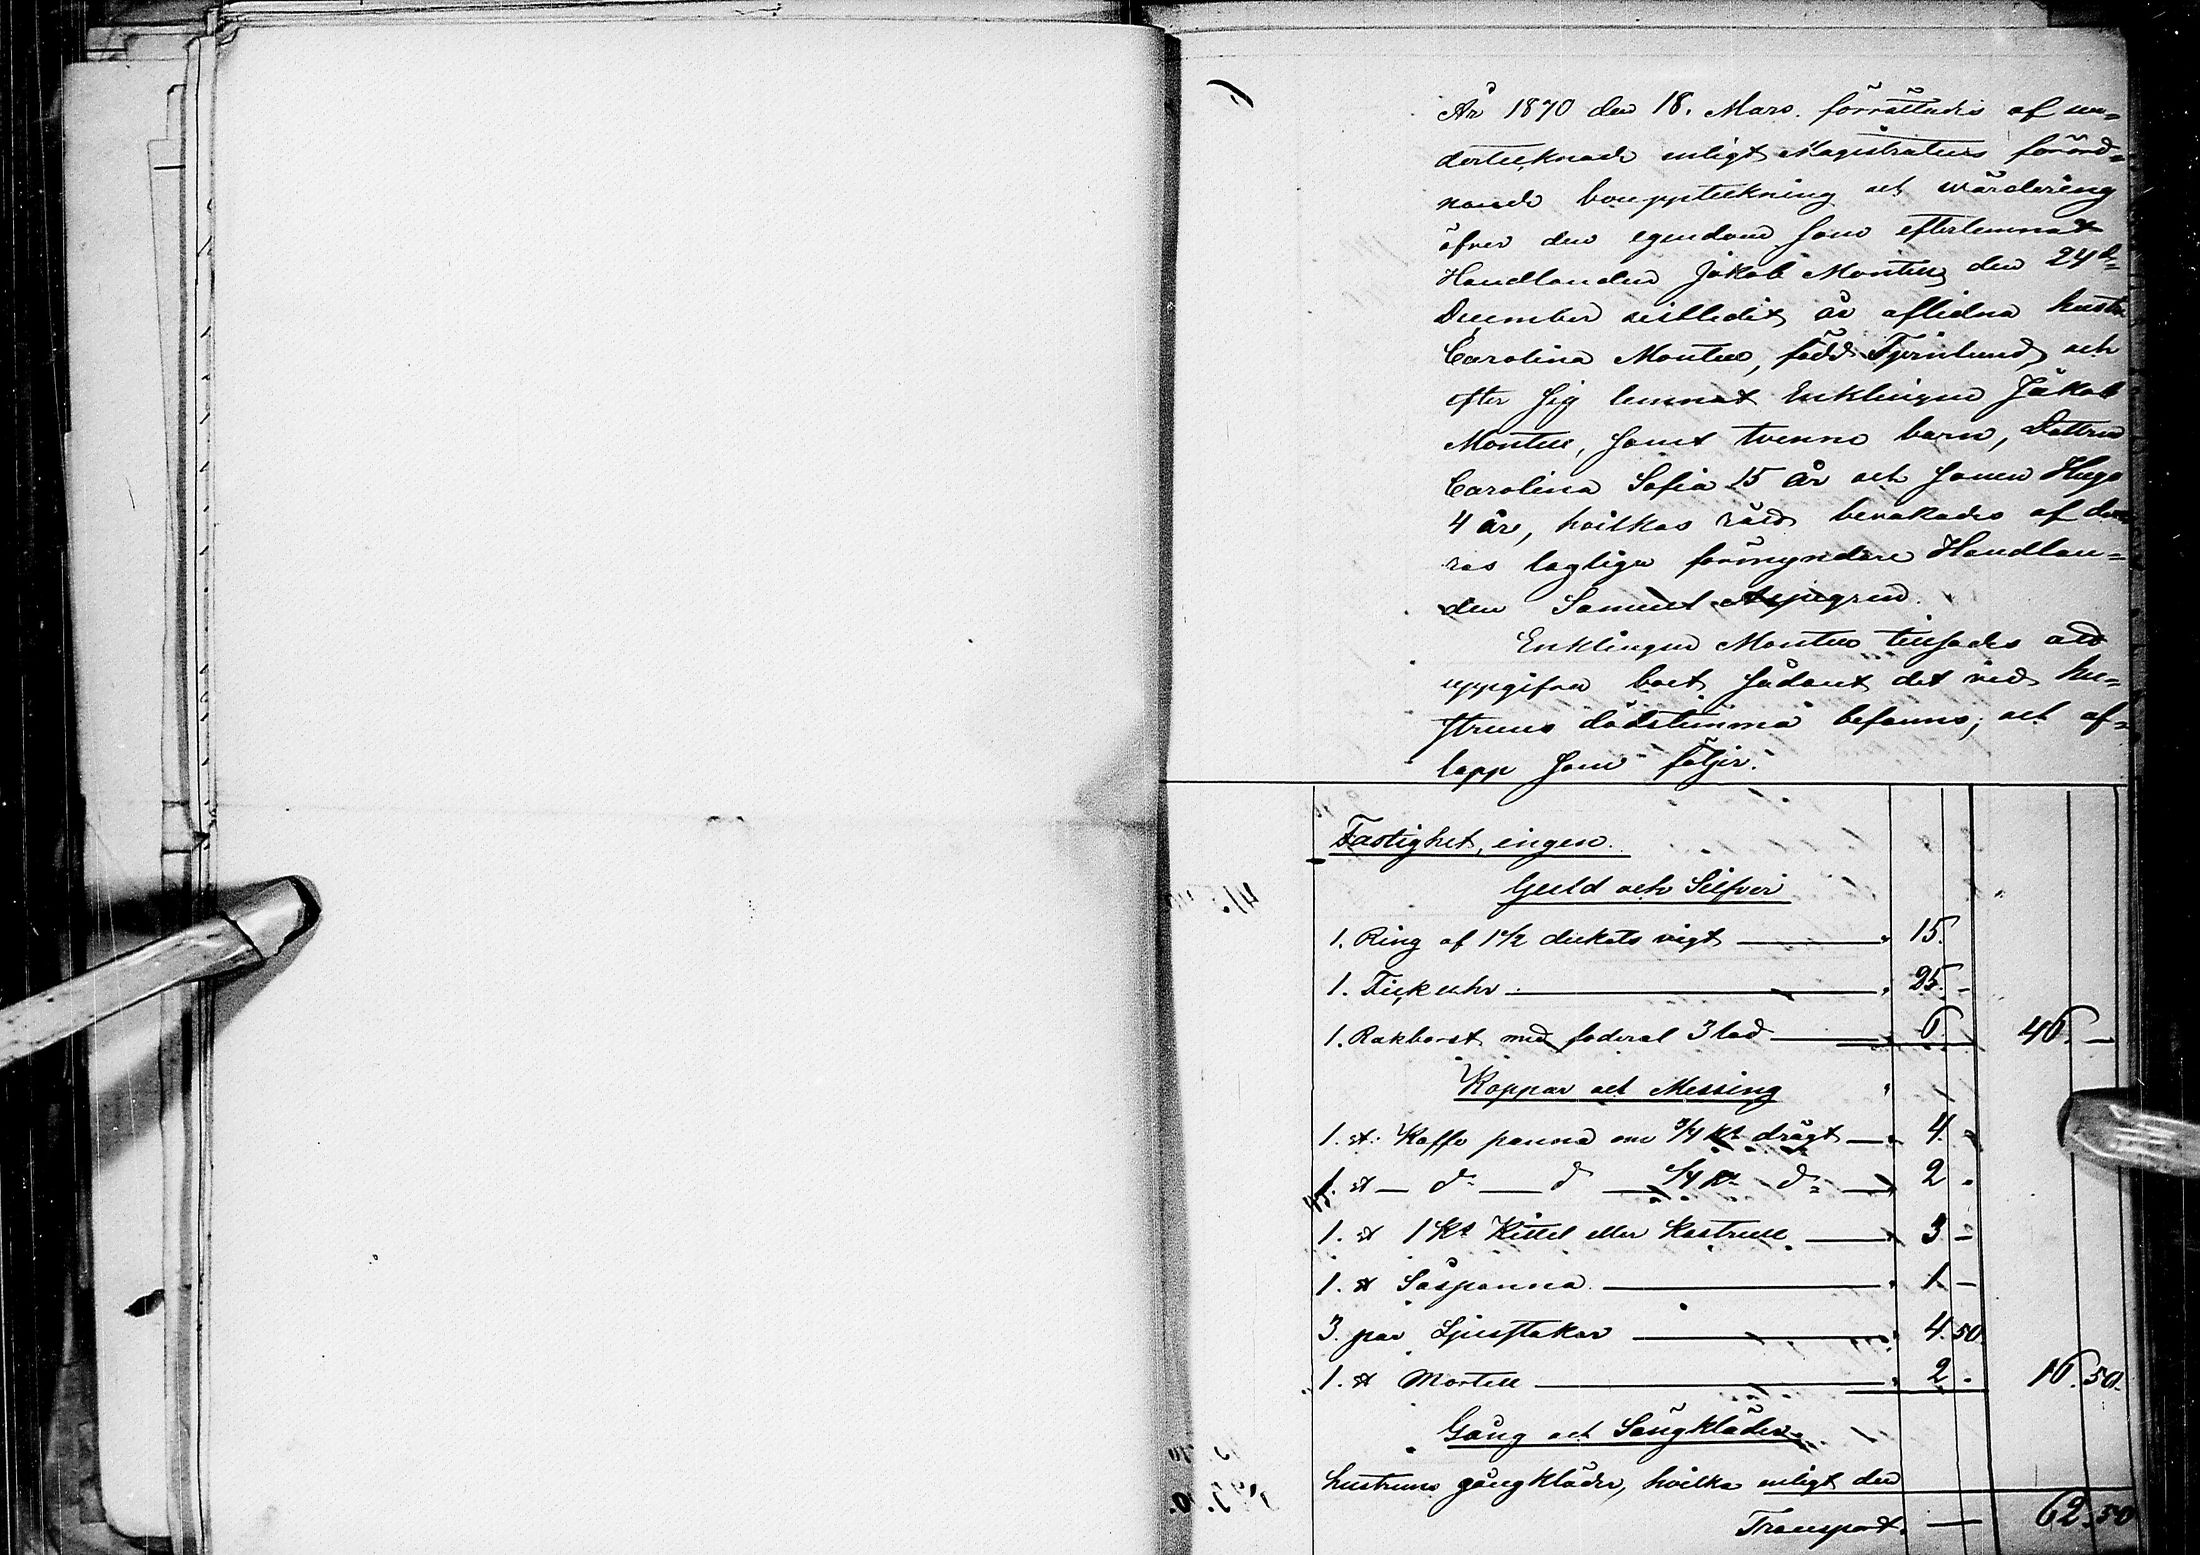 År 1870 den 18. Mars. förrättades af un-
dertecknade enligt Magistratens förord-
nande bouppteckning och wärdering
öfver den egendom som efterlemnat
Handlanden Jakob Montell den 24de
December sistledit år aflidna hustru
Carolina Montell, född Tjernlund, och
efter sig lemnat Enklingen Jakob
Montell, samt tvenne barn, Dottren
Carolina Sofia 15 år och sonen Hugo
4 år, hvilkas rätt bevakades af de-
ras laglige förmyndare Handlan-
den Samuel Aspegren.
Enklingen Montell tillsades att
uppgifva boet sådant det vid hu-
struns dödstimma befanns; och af-
lopp som följer:
Fastighet, ingen.
Guld och Silfver
1. Ring af 1 1/2 dukats vigt 15.
1. Fickuhr 25. -
1. Rakborst med foderal 3 lod 6. 46. -
Koppar och Messing
1. st. Kaffe panna om 3/4 kn drägt 4. -
1. st — do — do — 1/4 kn do 2.
1. st 1 kn Kittel eller Kastrull 3 -
1. st Såspanna 1. -
3. par Ljusstakar 4. 50.
1. st Mortell 2. 16. 50.
Gång och Sängkläder.
hustruns gångkläder, hvilka enligt den
Transport. — 62. 50